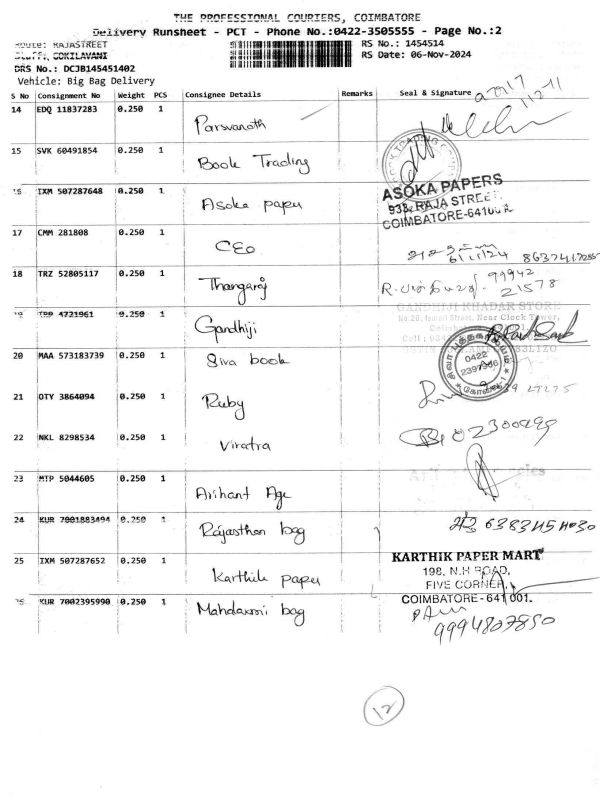 THE PROFESSIONAL COURIERS, COIMBATORE
Delivery Runsheet - PCT - Phone No.:0422-3505555 - Page No.:2
Route: RAJASTREET
RS No.: 1454514
GOKILAVANI
RS Date: 06-Nov-2024
DRS No.: DCJB145451402
Vehicle: Big Bag Delivery
S No Consignment No Weight PCS Consignee Details Remarks Seal & Signature
14 EDQ 11837283 0.250 1 Parsvanath
15 SVK 60491854 0.250 1 Book Trading
16 IXM 507287648 0.250 1 Asoka paper
ASOKA PAPERS
938, RAJA STREET,
COIMBATORE-641001
17 CMM 281808 0.250 1 CEO
6/11/24
18 TRZ 52805117 0.250 1 Thangaraj
99942
21578
19 4721961 0.250 1 Gandhiji
GANDHIJI KHADAR STORE
Near Clock Tower,
20 MAA 573183739 0.250 1 Siva book
0422
21 OTY 3864094 0.250 1 Ruby
22 NKL 8298534 0.250 1 Viratra
23 MTP 5044605 0.250 1 Arihant Age
24 KUR 7001883494 0.250 1 Rajasthan bag
25 IXM 507287652 0.250 1 Karthik paper
KARTHIK PAPER MART
198, N.H ROAD,
FIVE CORNER,
COIMBATORE - 641 001.
26 KUR 7002395990 0.250 1 Mahalaxmi bag
9994807850
12